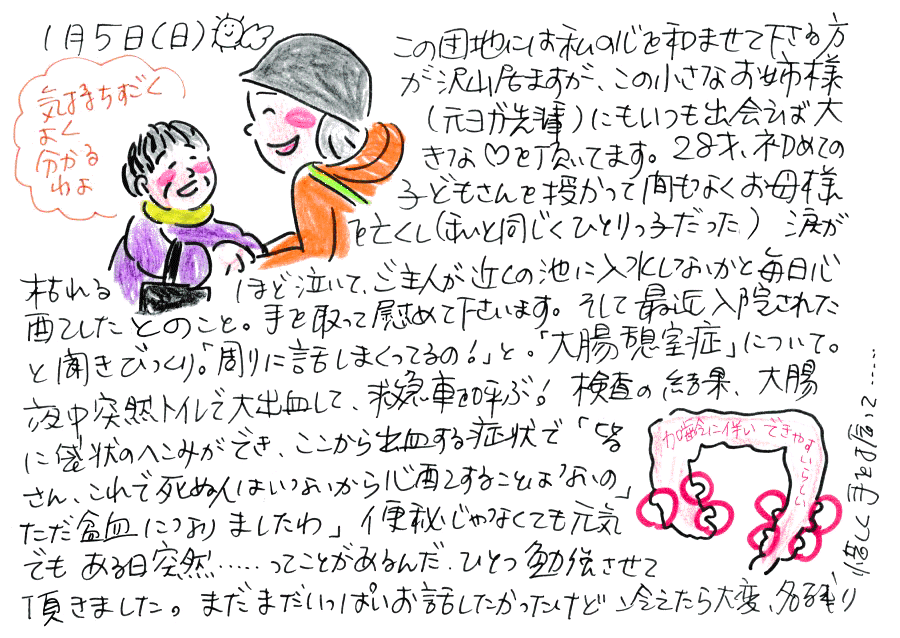 1月5日(日)
気持ちすごく
よく
分かる
わよ
この団地には私の心を和ませて下さる方
が沢山居ますが、この小さなお姉様
(元ヨガ先輩)にもいつも出会えば大
きな♡を頂いてます。28才、初めての
子どもさんを授かって間もなくお母様
を亡くし(私と同じくひとりっ子だった)涙が
枯れるほど泣いて、ご主人が近くの池に入水しないかと毎日心
配でしたとのこと。手を取って慰めて下さいます。そして最近入院された
と聞きびっくり。「周りに話しまくってるの!」と。「大腸憩室症」について。
夜中突然トイレで大出血して、救急車を呼ぶ!検査の結果、大腸
に袋状のへこみができ、ここから出血する症状で「皆
さん、これで死ぬ人はいないから心配することはないの」
ただ貧血になりましたわ」便秘じゃなくても元気
でもある日突然‥‥‥ってことがあるんだ。ひとつ勉強させて
頂きました。まだまだいっぱいお話したかったけど冷えたら大変、名残り
惜しく手を振って‥‥‥
加齢に伴いできやすいらしい